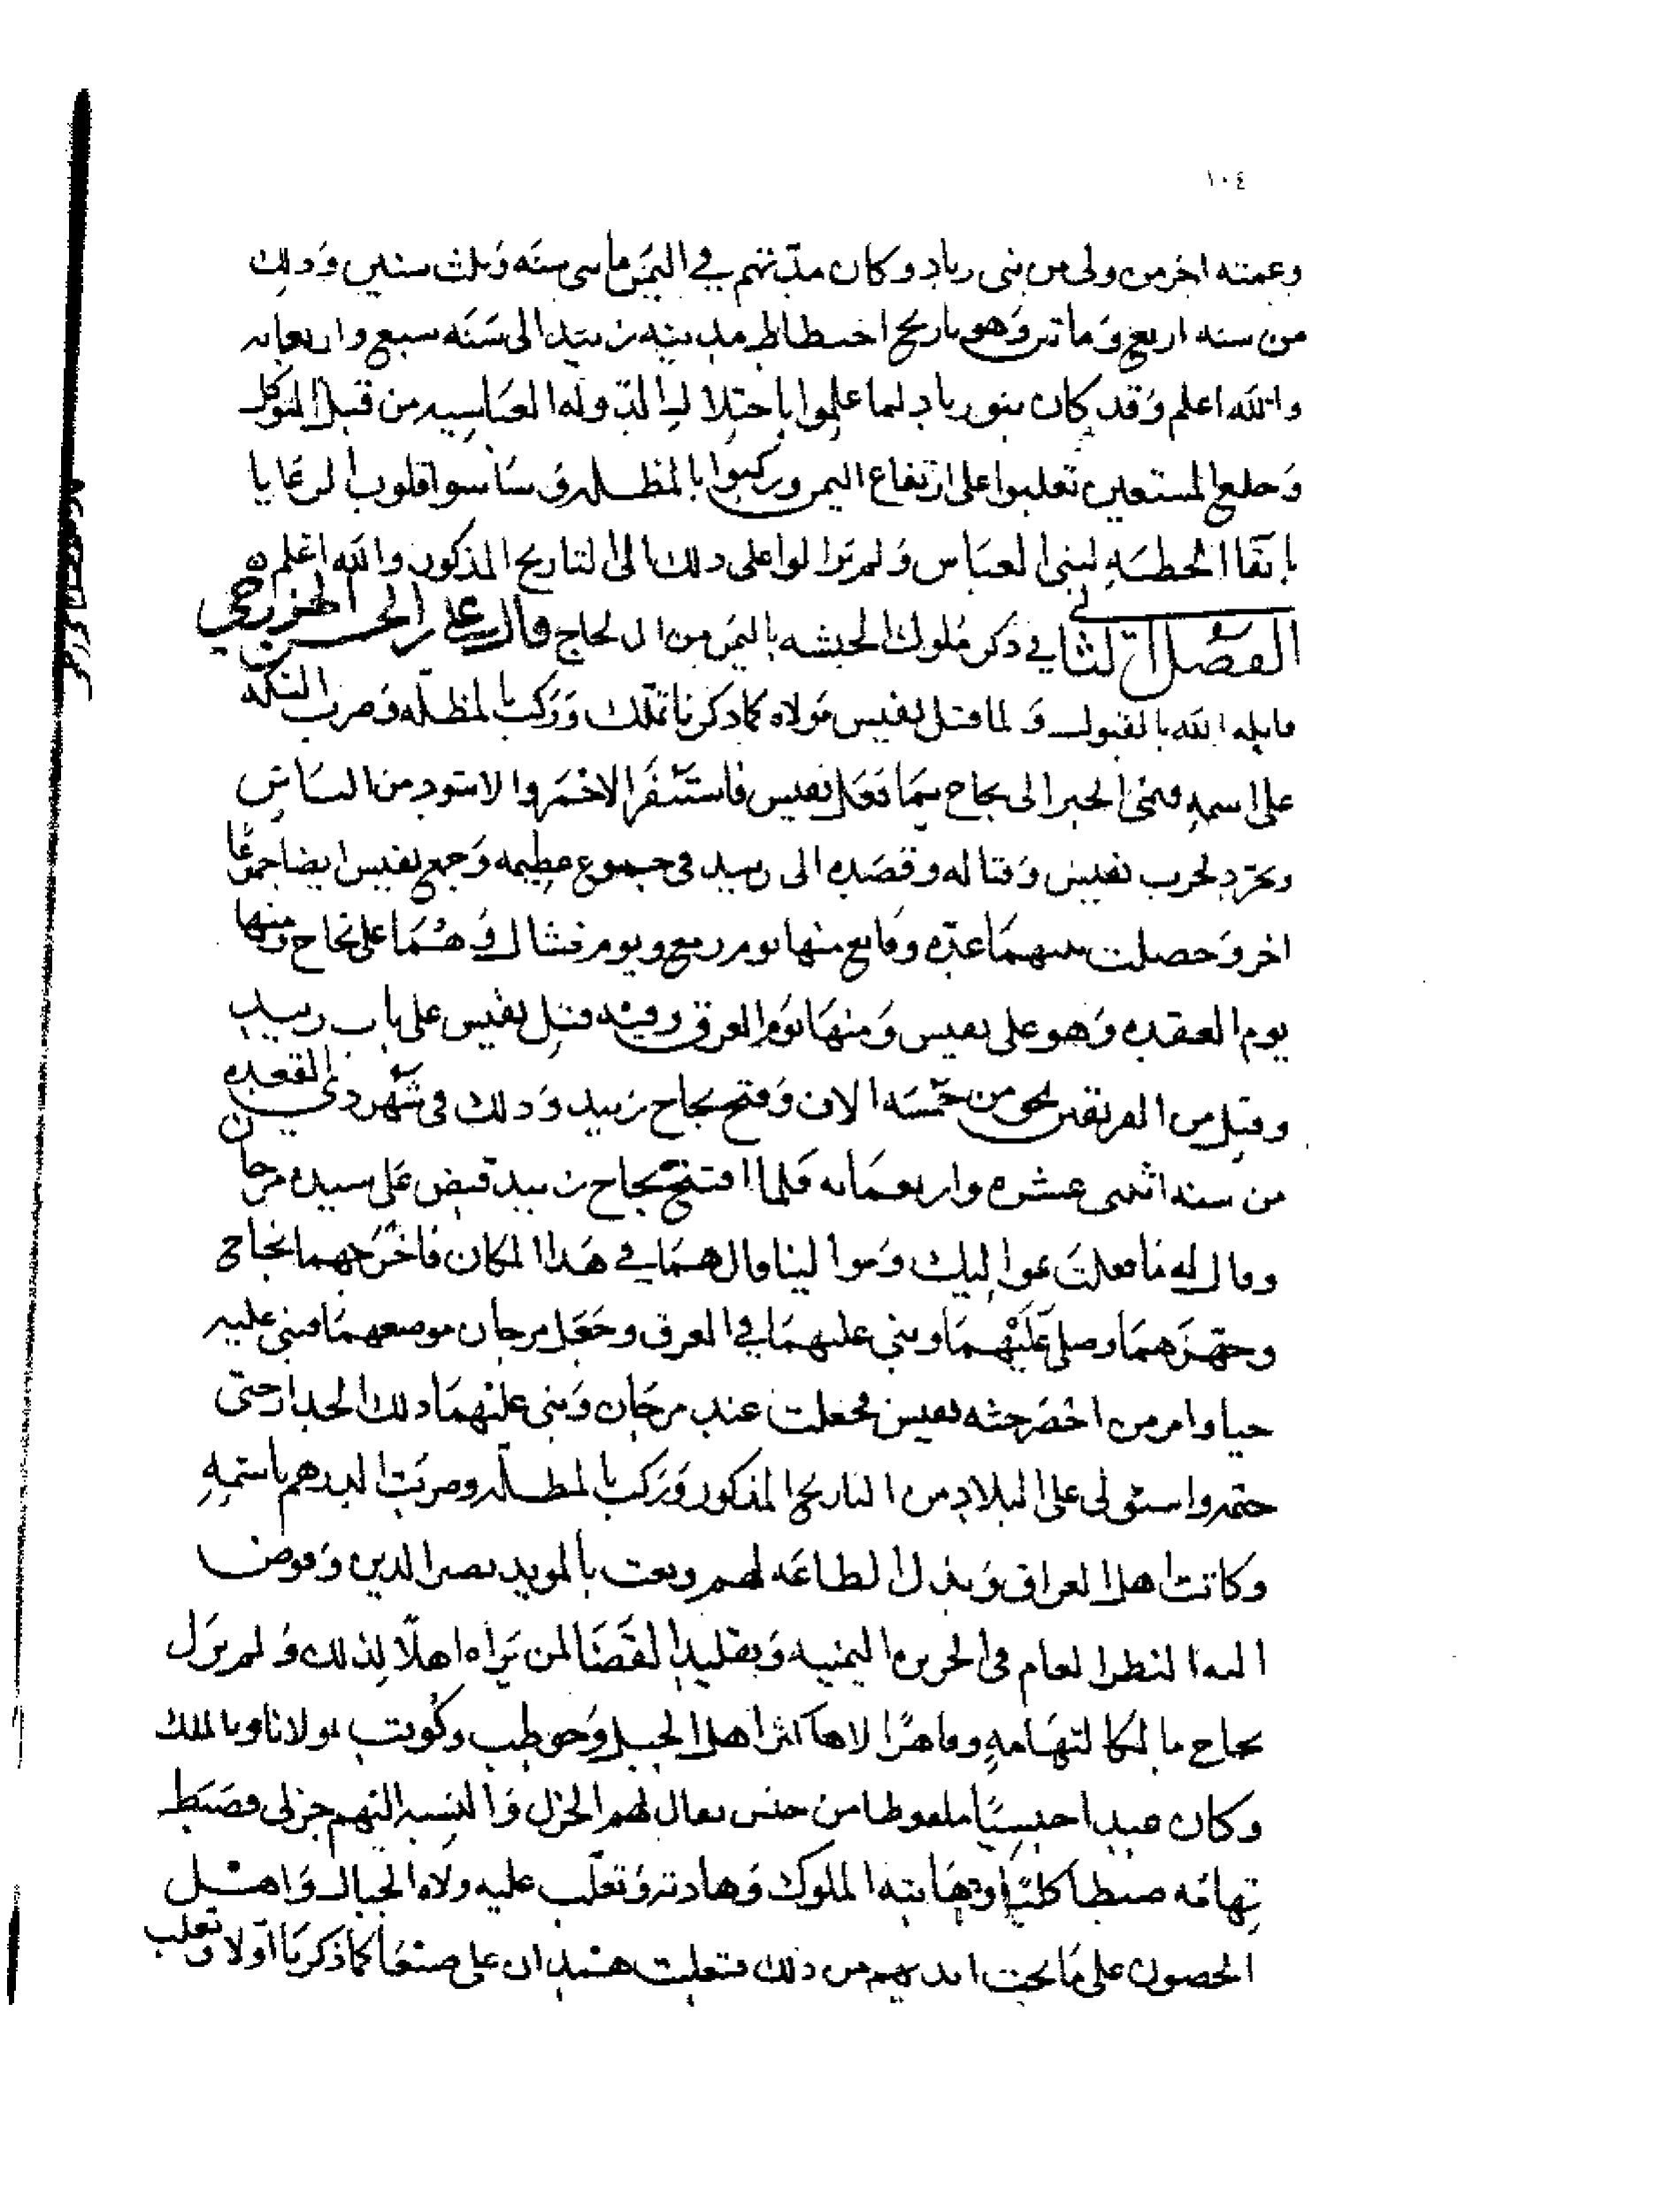 ١٠٤
وعمته اخر من ولى من بنى زياد وكان مدتهم في اليمن ماىى سنه وثلث سنين وذلك
من سنه اربع وماتىن وهو تاريخ اختطاط مدينه زبيد الى سنه سبع واربعمايه
والله اعلم وقد كان بنو زياد لما علموا باختلال الدوله العباسيه من قبل المتوكل
وخلع المستعين تغلبوا على ارتفاع اليمن وركبوا بالمظله وساسوا قلوب الرعايا
بابقا الخطبه لبنى العباس ولم يزالوا على ذلك الى التاريخ المذكور والله اعلم
الفصل الثاني في ذكر ملوك الحبشه باليمن من ال نجاح قال على بن الحسن الخزرجي
قابله الله بالقبول ولما قتل نفيس مولاه كما ذكرنا تملك وركب بالمظله وضرب السكه
على اسمه فنمى الخبر الى نجاح بما فعل نفيس فاستنفر الاحمر والاسود من الناس
وتجرد لحرب نفيس وقتاله وقصده الى زبيد فى جموع عظيمه وجمع نفيس ايضا جموعا
اخر وحصلت بينهما عده وقايع منها يوم رمع ويوم فشال وهما على نجاح ومنها
يوم العقده وهو على نفيس ومنها يوم العرق وفيه قتل نفيس على باب زبيد
وقتل من الفريقين نحو من خمسه الاف وفتح نجاح زبيد وذلك فى شهر ذي القعده
من سنه اثنى عشره واربعمايه فلما افتتح نجاح زبيد قبض على سيده مرجان
وقال له ما فعلت مواليك وموالينا قال هما في هذا المكان فاخرجهما نجاح
وجهزهما وصلى عليهما وبنى عليهما في العرق وجعل مرجان موضعهما فبنى عليه
حيا وامر من احضر جثه نفيس فجعلت عند مرجان وبنى عليهما ذلك الجدار حتى
ختمه واستولى على البلاد من التاريخ المذكور وركب بالمظله وضربت الدرهم باسمه
وكاتب اهل العراق وبذل الطاعه لهم ونعت بالمويد نصر الدين وفوض
اليه النظر العام فى الجزيره اليمنيه وتقليد القضا لمن يراه اهلا لذلك ولم يزل
نجاح مالكا لتهامه وقاهرا لاهل اكثر اهل الجبل وخوطب وكوتب بمولانا وبالملك
وكان عبدا حبشيا من جنس يقال لهم الجزل والنسبه اليهم جزلى فضبط
تهامه ضبطا كليا وتهابته الملوك وهادته وتغلب عليه ولاه الجبال واهل
الحصون على ما تحت ايديهم من ذلك فتغلبت همدان على صنعا كما ذكرنا اولا وتغلب